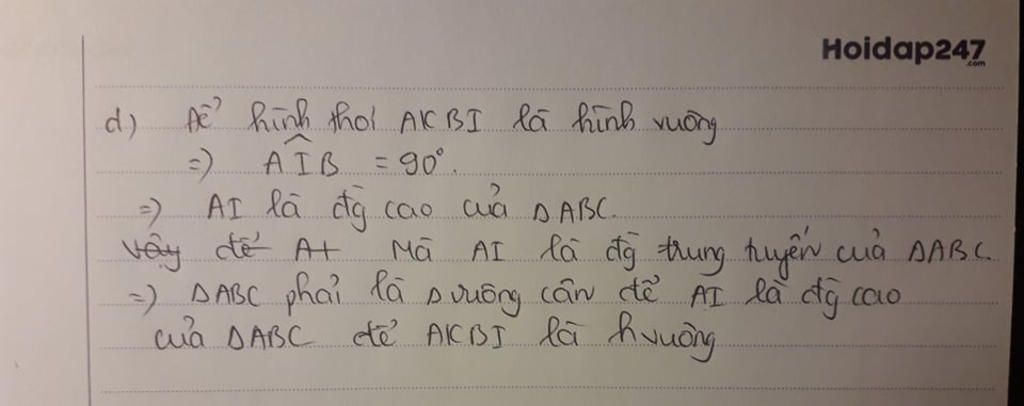 Hoidap247
.com
d) Để hình thoi AKBI là hình vuông
=> AIB = 90°.
=> AI là đg cao của ΔABC.
Vậy để A+ Mà AI là đg trung tuyến của ΔABC.
=> ΔABC phải là Δ vuông cân để AI là đg cao
của ΔABC để AKBI là hvuông